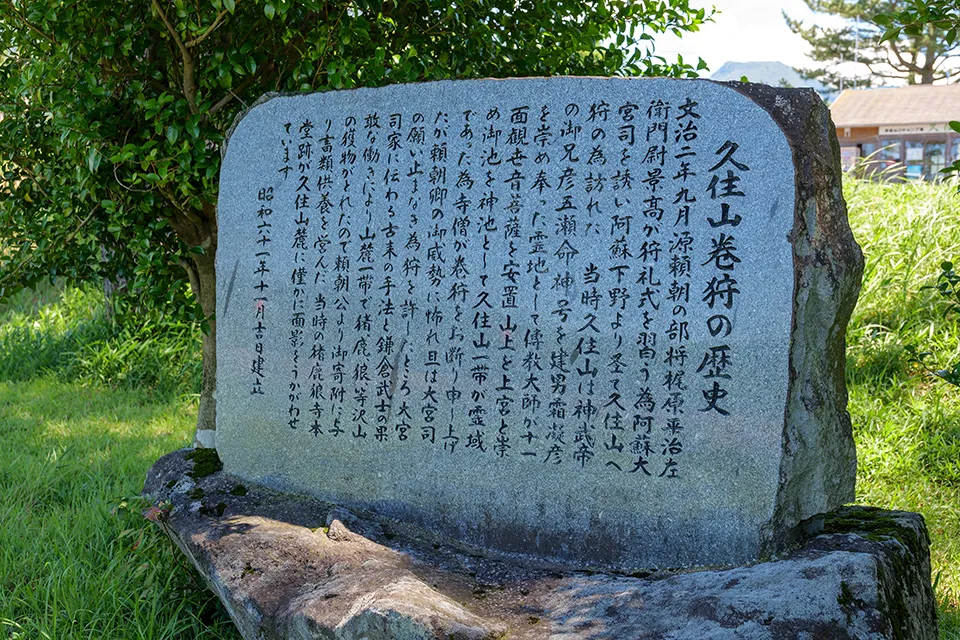 久住山巻狩の歴史
文治二年九月源頼朝の部将梶原平治左
衛門尉景高が狩礼式を習う為阿蘇大
宮司を誘い阿蘇下野より至て久住山へ
狩の為訪れた 当時久住山は神武帝
の御兄彦五瀬命神号を建男霜凝彦
を崇め奉った霊地として傳教大師が十一
面観世音菩薩を安置山上を上宮と崇
め御池を神池として久住山一帯が霊域
であった為寺僧が巻狩をお断り申し上げ
たが頼朝卿の御威勢に怖れ且は大宮司
の願い止まなき為狩を許したところ大宮
司家に伝わる古来の手法と鎌倉武士の果
敢な働きにより山麓一帯で猪鹿狼等沢山
の獲物がとれたので頼朝公より御寄附に与
り書類供養を営んだ 当時の猪鹿狼寺本
堂跡が久住山麓に僅かに面影をうかがわせ
ています
昭和六十一年十一月吉日建立